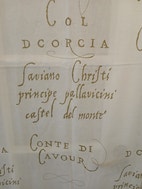 COL
DCORCIA
Saviano Christi
principe pallavicini
castel del monte
CONTE DI
CAVOUR
D